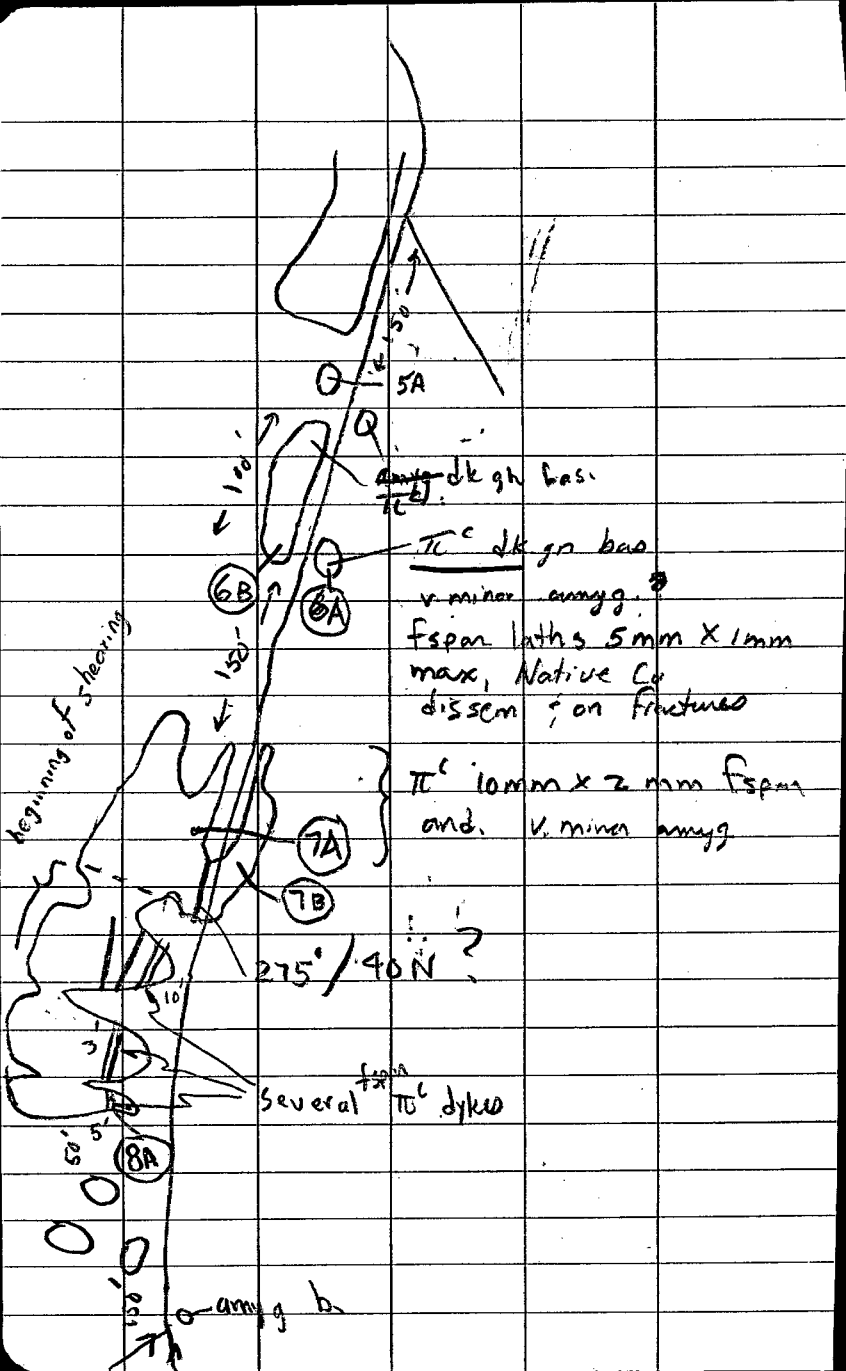 150'
5A
100'
amyg dk gn bas.
6B
πᶜ dk gn bas
6A
v. minor amyg.
fspar laths 5mm X 1mm
max, Native Cu
dissem & on fractures
150'
beginning of shearing
πᶜ 10mm x 2 mm fspar
and. v. minor amyg
7A
7B
275°/40N ?
10'
3'
fspar
several πᶜ dykes
5'
50'
8A
100'
amyg b.